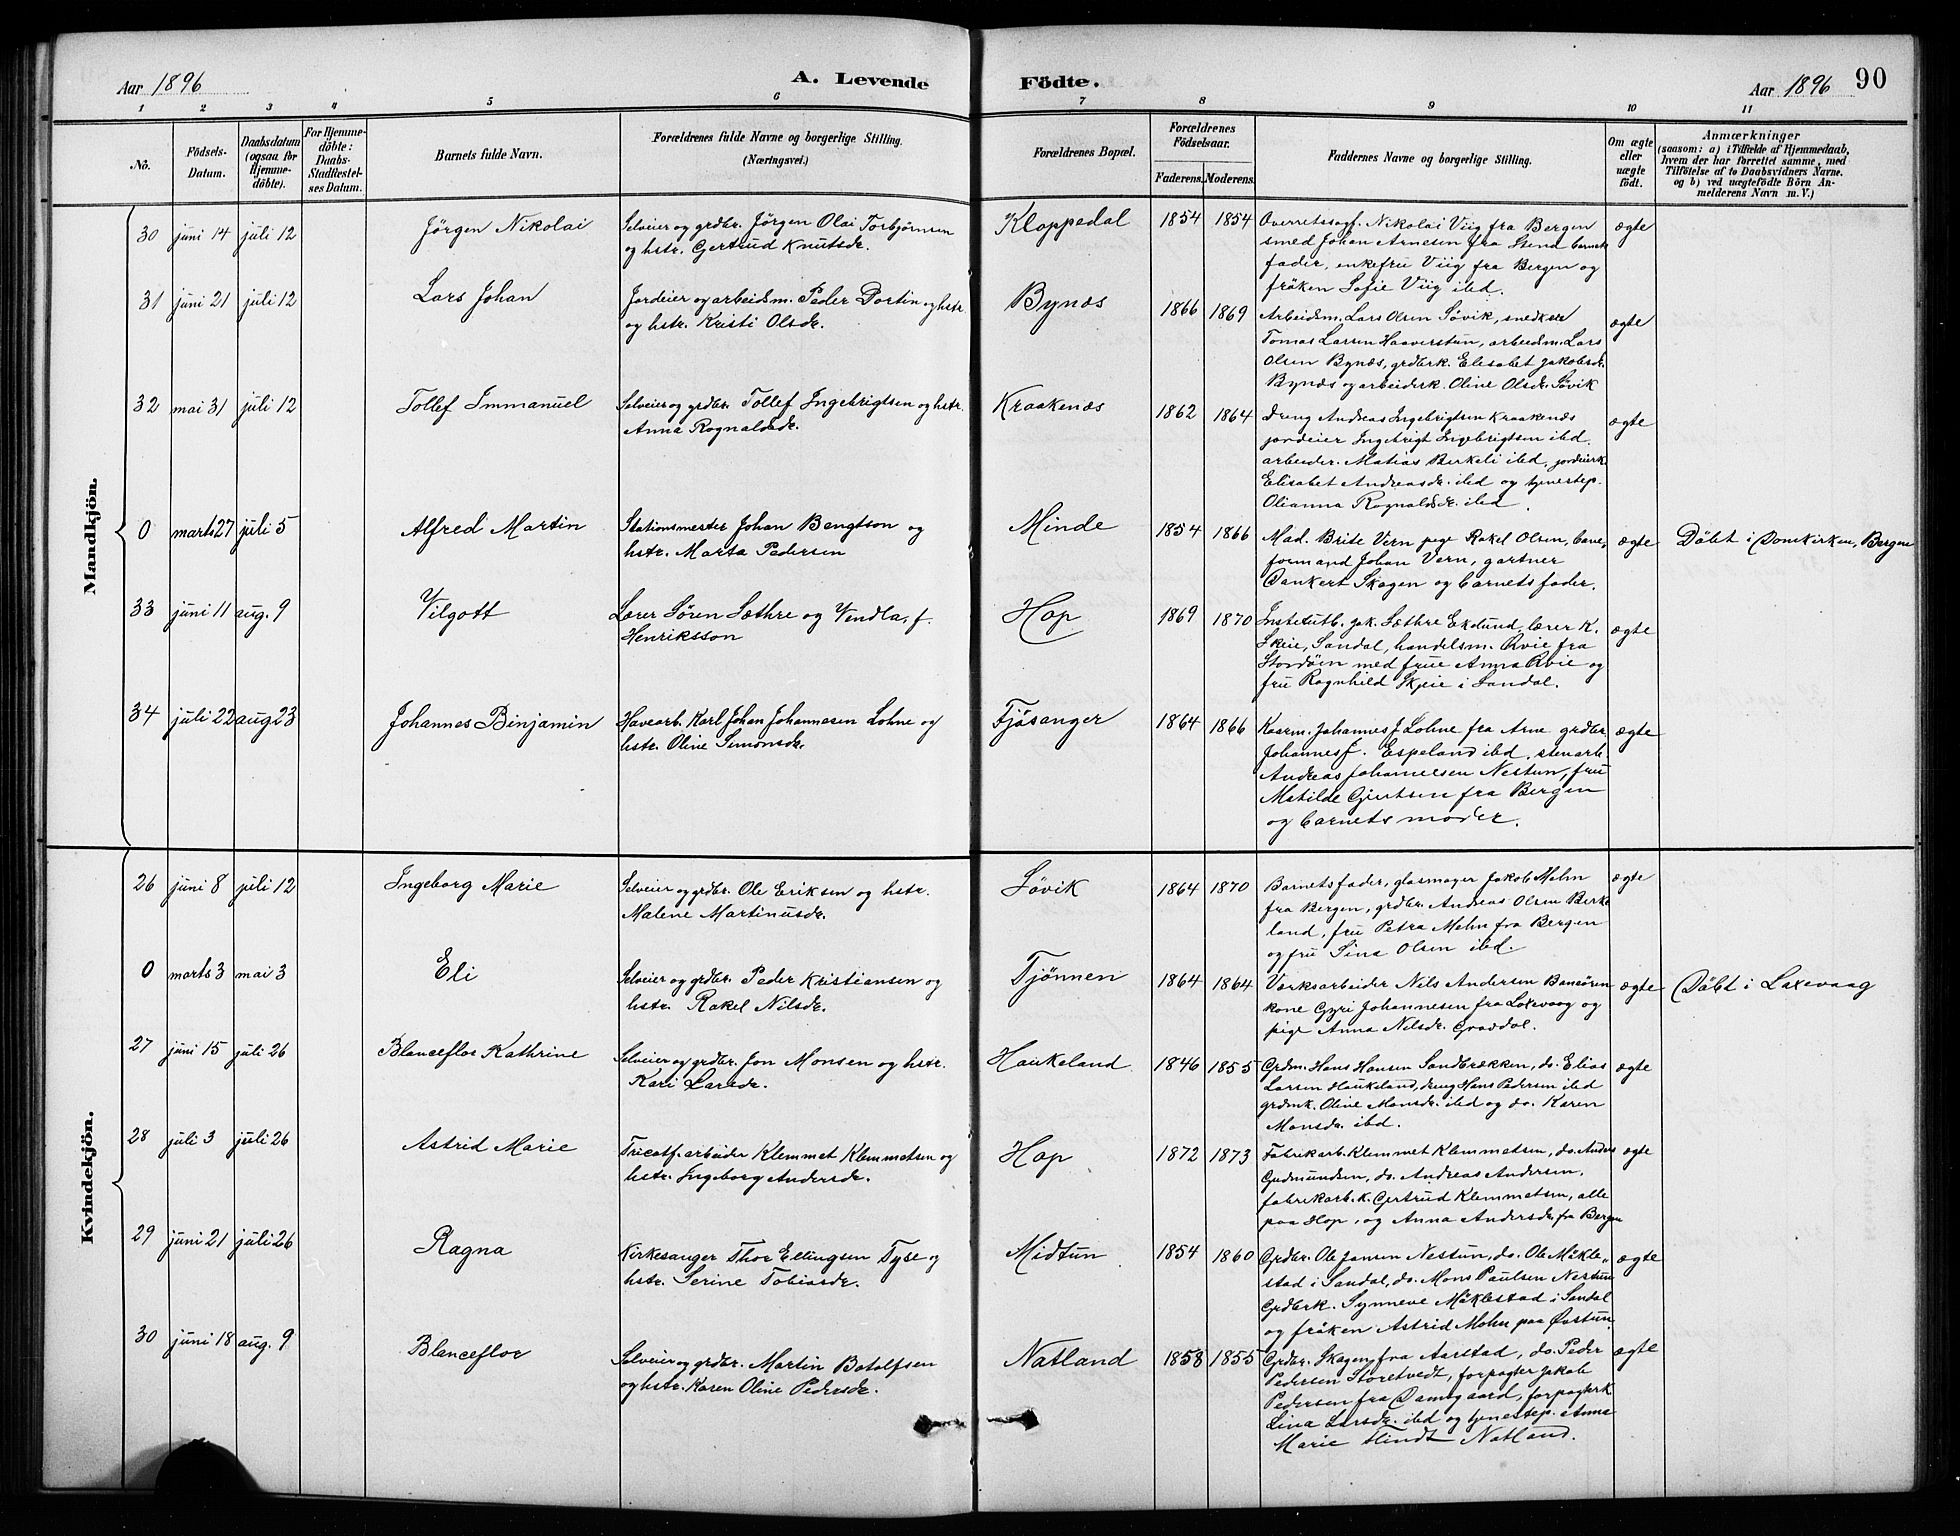 Aar 1896
A. Levende
Födte.
Aar 1896
90
1 2 3 4 5 6 7 8 9 10 11
No.
Födsels-
Datum.
Daabsdatum
(ogsaa for
Hjemme-
döbte).
For Hjemme-
döbte:
Daabs-
Stadfæstel-
ses Datum.
Barnets fulde Navn.
Forældrenes fulde Navne og borgerlige Stilling.
(Næringsvei.)
Forældrenes Bopæl.
Forældrenes
Födselsaar.
Faderens. Moderens.
Faddernes Navne og borgerlige Stilling.
Om ægte
eller
uægte
födt.
Anmærkninger
(saasom: a) i Tilfælde af Hjemmedaab,
hvem der har forrettet samme, med
Tilföielse af to Daabsvidners Navne.
og b) ved uægtefödte Börn An-
melderens Navn m. V.)
Mandkjön.
30 juni 14 juli 12 Jörgen Nikolai
Selveier og grdbr. Jörgen Olai Torbjørnsen
og hstr. Gertrud Knutsdr.
Kloppedal 1854 1854
Overretssagf. Nikolai Viig fra Bergen
smed Johan Arnesen fra Stend barnets
fader, enkefru Viig fra Bergen og
fröken Sofie Viig ibd.
ægte
31 juni 21 juli 12 Lars Johan
Jordeier og arbeidsm. Peder Dortin og hstr.
og hstr. Kristi Olsdr.
Bynæs 1866 1869
Arbeidsm. Lars Olsen Søvik, snedker
Tomas Larsen Haaverstun, arbeidsm. Lars
Olsen Bynæs, grdbrk. Elisabet Jakobsdr.
Bynæs og arbeiderk. Oline Olsdr. Søvik
ægte
32 mai 31 juli 12 Tollef Immanuel
Selveier og grdbr. Tollef Ingebrigtsen og hstr.
Anna Rognaldsdr.
Kraakenæs 1862 1864
Dreng Andreas Ingebrigtsen Kraakenæs
jordeier Ingebrigt Ingebrigtsen ibd.
arbeider Matias Birkeli ibd, jordeierk.
Elisabet Andreasdr. ibd og tjenestep.
Olianna Rognaldsdr. ibd.
ægte
0 marts 27 juli 5 Alfred Martin
Stationsmester Johan Bengtson og
hstr. Marta Pedersen
Minde 1854 1866
Mad. Brite Vern pige Rakel Olsen, bane-
formand Johan Vern, gartner
Dankert Skagen og barnets fader.
ægte
Döbt i Domkirken, Bergen
33 juni 11 aug. 9 Vilgott
Lærer Sören Sæthre og Vendla, f.
Henriksson
Hop 1869 1870
Institutb. Jak. Sæthre Eklund, lærer K.
Skeie, Sandal, handelsm. Kvie fra
Stordöen med frue Anna Kvie og
fru Ragnhild Skeie i Sandal.
ægte
34 juli 22 aug 23 Johannes Binjamin
Havearb. Karl Johan Johannesen Lohne og
hstr. Oline Simonsdr.
Fjösanger 1864 1866
Kaarm. Johannes J Lohne fra Arne grdbr
Johannes J. Espeland ibd, stenarb.
Andreas Johannesen Nestun, fru
Matilde Gjertsen fra Bergen
og barnets moder.
ægte
Kvindekjön.
26 juni 8 juli 12 Ingeborg Marie
Selveier og grdbr. Ole Eriksen og hstr.
Malene Martinusdr.
Søvik 1864 1870
Barnets fader, glasmager Jakob Mohn
fra Bergen, grdbr. Andreas Olsen Birke
land, fru Petra Mohn fra Bergen
og fru Sina Olsen ibd.
ægte
0 marts 3 mai 3 Eli
Selveier og grdbr. Peder Kristiansen og
hstr. Rakel Nilsdr.
Tjönnen 1864 1864
Værksarbeider Nils Andersen
kone Gyri Johannesen fra Laxevaag og
pige Anna Nilsdr. Graddal.
ægte
Döbt i Laxevaag
27 juni 15 juli 26 Blanceflor Kathrine
Selveier og grdbr. Jon Monsen og hstr.
Kari Larsdr.
Haukeland 1846 1855
Grdm. Hans Hansen Sandbrækken, do. Elias
Larsen Haukeland, dreng Hans Pedersen ibd
grdmk. Oline Monsdr. ibd og do. Karen
Monsdr. ibd.
ægte
28 juli 3 juli 26 Astrid Marie
Tricotf. arbeider Klemmet Klemmetsen og
hstr. Ingeborg Andersdr.
Hop 1872 1873
Fabrikarb. Klemmet Klemmetsen, do. Anders
Gudmundsen, do. Andreas Andersen,
fabrikarb. k. Gertrud Klemmetsen, alle
paa Hop, og Anna Andersdr. fra Bergen
ægte
29 juni 21 juli 26 Ragna
Kirkesanger Thor Ellingsen Tyse og
hstr. Serine Tobiasdr.
Midtun 1854 1860
Grdbr. Ole Jansen Nestun, do. Ole Mökle-
stad i Sandal, do. Mons Paulsen Nestun
Grdbrk. Synneve Möklestad i Sandal
og fröken Astrid Mohn paa Øvstun.
ægte
30 juni 18 aug. 9 Blanceflor
Selveier og grdbr. Martin Botolfsen
og hstr. Karen Oline Pedersdr.
Natland 1858 1855
Grdbr. Skagen fra Aarstad, do. Peder
Pedersen Storetvedt, forpagter Jakob
Pedersen fra Damsgaard, forpagterk
Lina Larsdr. ibd og tjenestep. Anna
Marie Flindt Natland.
ægte